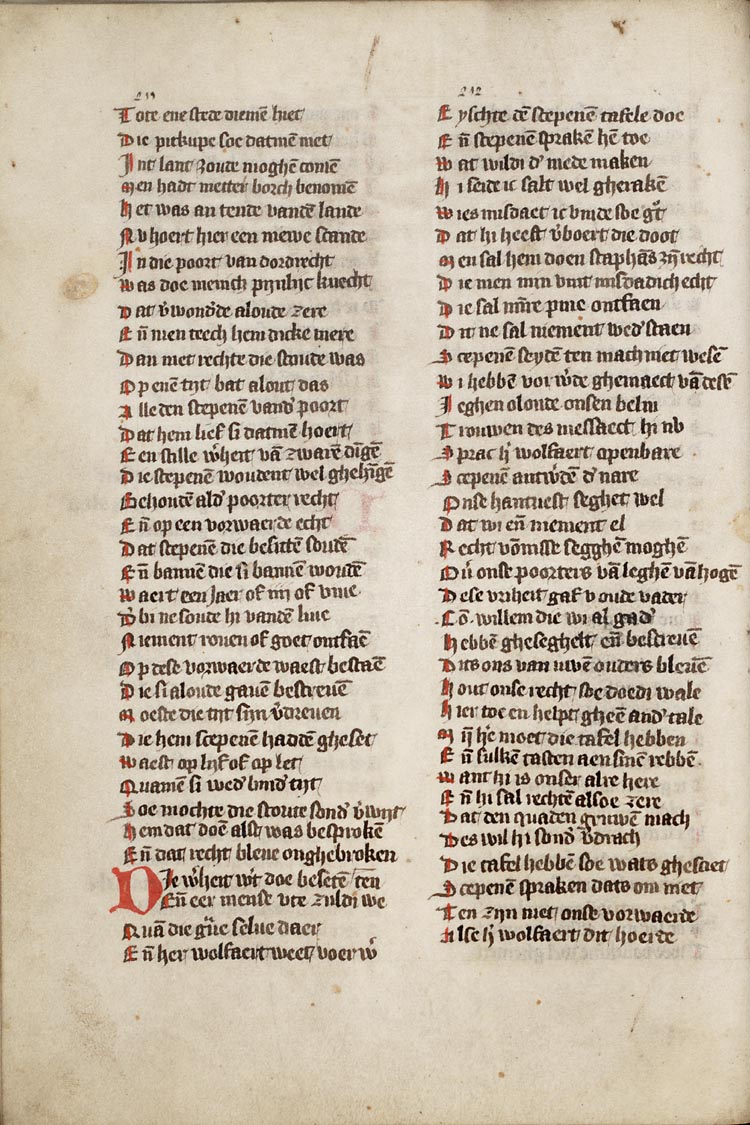 211
Tote ene stede diemē hiet
Die pitkupe soe datmē met
Int lant zoude moghē comē
Men hadt metter borch benomē
Het was an tende vandē lande
Nv hoert hier een niewe scande
In die poort van dordrecht
Was doe menich pijnlijc knecht
Dat v̄wond'de aloude zere
Eñ men teech hem dicke mere
Dan met rechte die scoude was
Op enē tijt bat alout das
Alle den scepenē vand' poort
Dat hem lief si datmē hoert
Een stille w'heit vā zwarē dīgē
Die scepenē woudent wel ghehīgē
Behoudē ald' poorter recht
Eñ op een vorwaerde echt
Dat scepenē die besittē soudē
Eñ bannē die si bannē woudē
Waert een jaer of iiij of viue
D' bi ne soude hi vandē liue
Niement rouen of goet ontfaē
Op dese vorwaerde waest bestaē
Die si aloude gauē bescreuē
Moeste die tijt sijn v̄dreuen
Die hem scepenē haddē gheset
Waest op lijf of op let
Quamē si wed' bind' tijt
Soe mochte die scoute sond' v̄wijt
Hem dat doē alst was besprokē
Eñ dat recht bleue onghebroken
Die w'heit wt doe besetē ten
Eñ eer mense vte zuldi we
Quā die g'ue selue daer
Eñ her wolfaert weet voer w'
212
Eyschte dē scepenē tafele doe
Eñ scepenē sprakē hē toe
Wat wildi d' mede maken
Hi seide ic salt wel gherakē
Wies misdaet ic vinde soe g't
Dat hi heeft v̄boert die doot
Men sal hem doen staphās zij recht
Die men min vint misdadich echt
Die sal mīre pine ontfaen
Dit ne sal niement wed'staen
Scepenē seydē ten mach niet wesē
Wi hebbē vorw'de ghemaect vā desē
Jeghen aloude onsen belui
Trouwen des messaect hi nv
Sprac h' wolfaert openbare
Scepenē antw'dē d' nare
Onse hantuest seghet wel
Dat wi eñ niement el
Recht vōnisse segghē moghē
Ou' onse poorters vā leghē vā hogē
Dese vriheit gaf v oude vader
Cō. willem die wi al gad'
Hebbē ghesegelt eñ bescreuē
Dits ons van uwē ouders bleuē
Hout onse recht soe doedi wale
Hier toe en helpt gheē and' tale
Mij hē moet die tafel hebben
Eñ sulkē tasten aen sinē rebbē
Want hi is onser alre here
Eñ hi sal rechtē alsoe zere
Dat den quaden gruwē mach
Des wil hi sond' v̄drach
Die tafel hebbē soe wats ghesciet
Scepenē spraken dats om niet
Ten zijn niet onse vorwaerde
Alse h' wolfaert dit hoerde